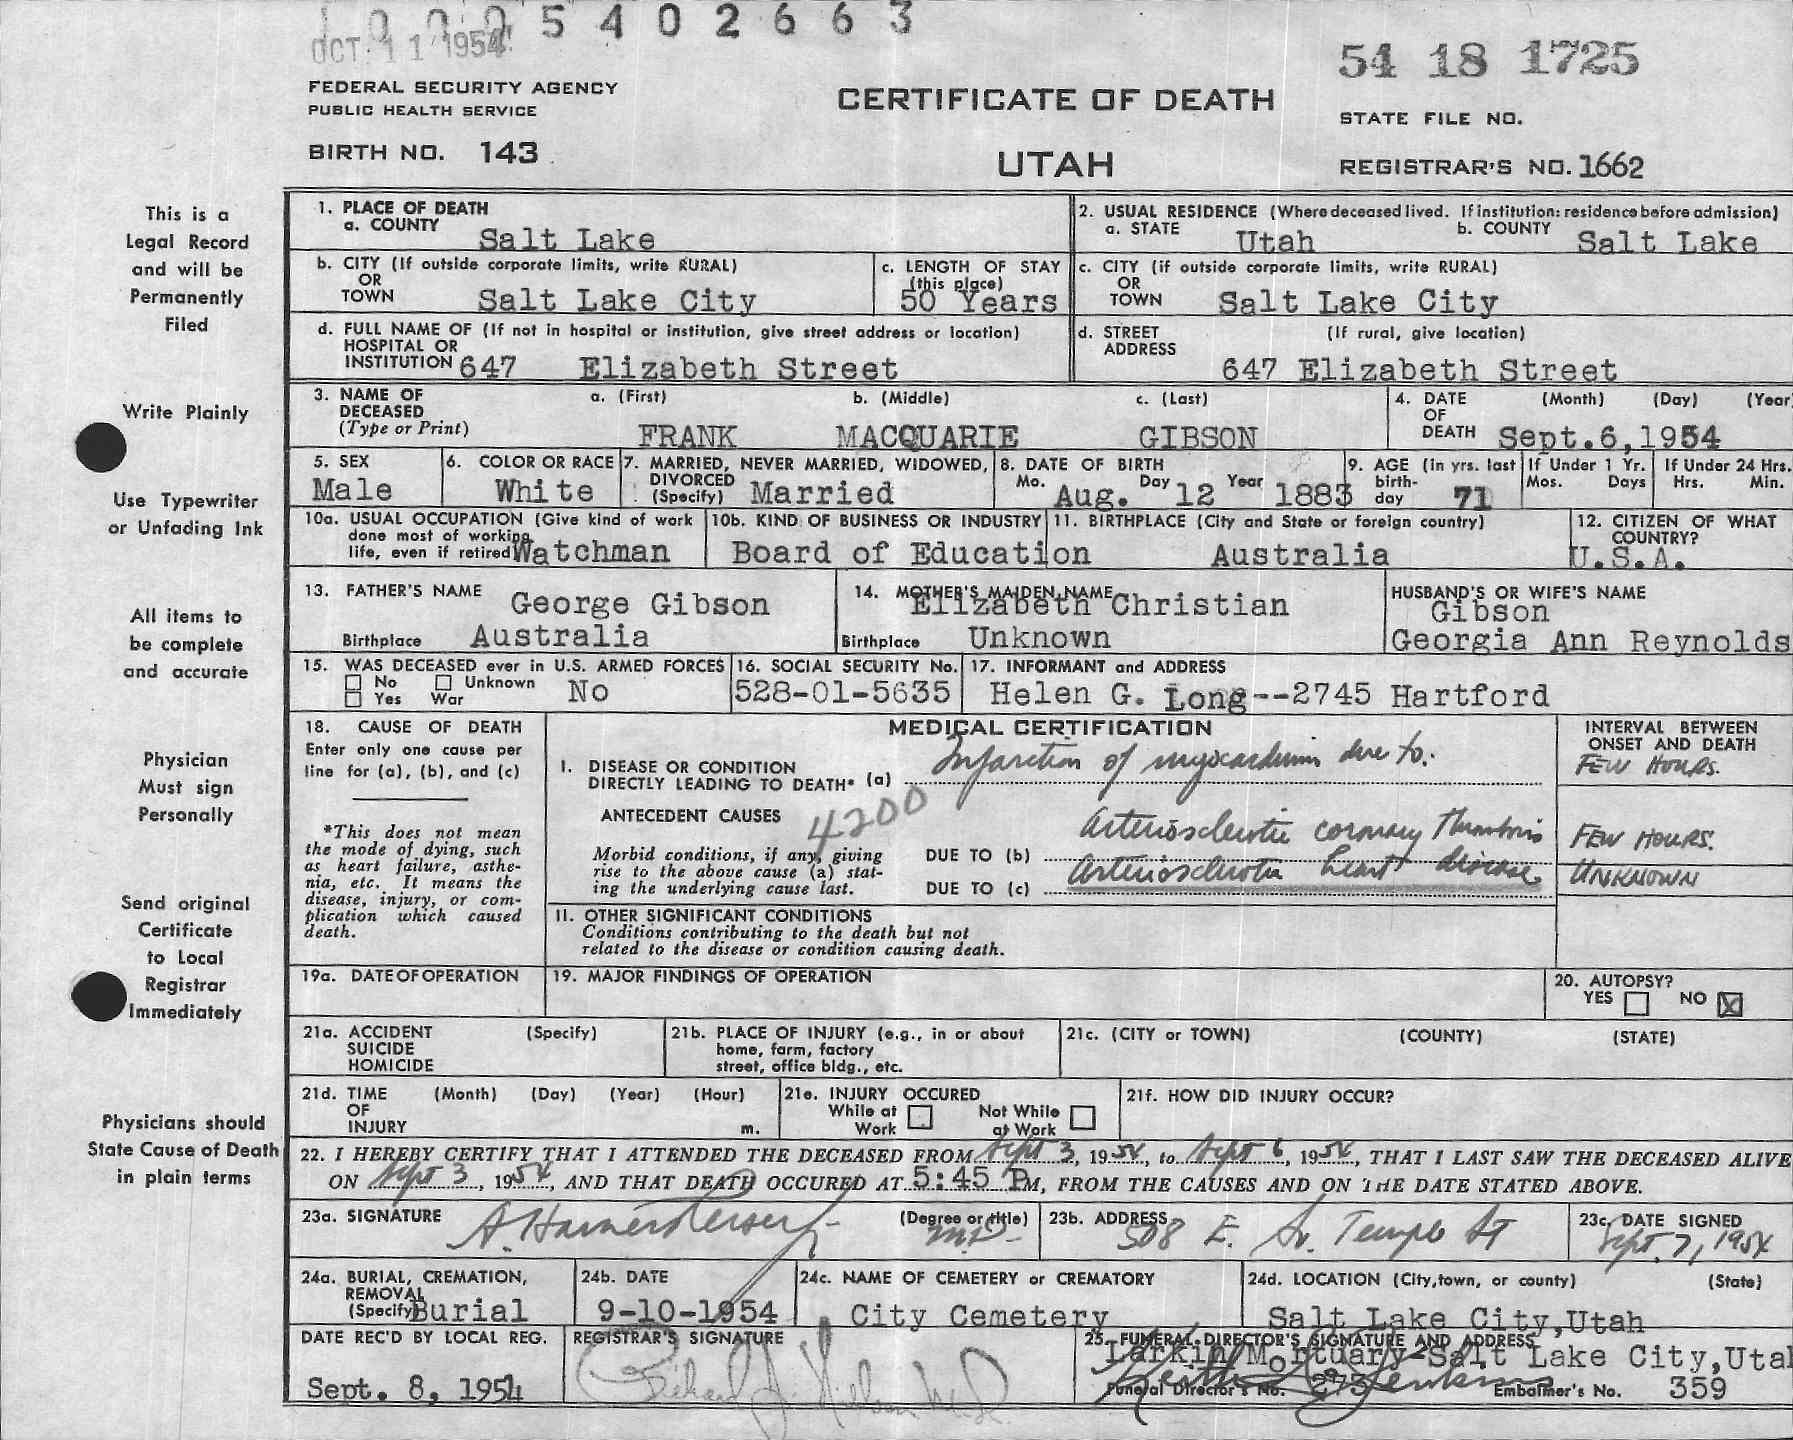 1 0 0 0 5 4 0 2 6 6 3
OCT 11 1954
54 18 1725
FEDERAL SECURITY AGENCY
PUBLIC HEALTH SERVICE
CERTIFICATE OF DEATH
STATE FILE NO.
BIRTH NO. 143
UTAH
REGISTRAR'S NO. 1662
This is a
Legal Record
and will be
Permanently
Filed
Write Plainly
Use Typewriter
or Unfading Ink
All items to
be complete
and accurate
Physician
Must sign
Personally
Send original
Certificate
to Local
Registrar
Immediately
Physicians should
State Cause of Death
in plain terms
1. PLACE OF DEATH
a. COUNTY Salt Lake
2. USUAL RESIDENCE (Where deceased lived. If institution: residence before admission)
a. STATE Utah b. COUNTY Salt Lake
b. CITY (If outside corporate limits, write RURAL)
OR
TOWN Salt Lake City
c. LENGTH OF STAY
(this place)
50 Years
c. CITY (if outside corporate limits, write RURAL)
OR
TOWN Salt Lake City
d. FULL NAME OF (If not in hospital or institution, give street address or location)
HOSPITAL OR
INSTITUTION 647 Elizabeth Street
d. STREET (If rural, give location)
ADDRESS
647 Elizabeth Street
3. NAME OF
DECEASED
(Type or Print)
a. (First) b. (Middle) c. (Last)
FRANK MACQUARIE GIBSON
4. DATE (Month) (Day) (Year
OF
DEATH Sept.6,1954
5. SEX
Male
6. COLOR OR RACE
White
7. MARRIED, NEVER MARRIED, WIDOWED,
DIVORCED
(Specify) Married
8. DATE OF BIRTH
Mo. Aug. Day 12 Year 1883
9. AGE (In yrs. last
birth-
day 71
If Under 1 Yr.
Mos. Days
If Under 24 Hrs.
Hrs. Min.
10a. USUAL OCCUPATION (Give kind of work
done most of working
life, even if retired Watchman
10b. KIND OF BUSINESS OR INDUSTRY
Board of Education
11. BIRTHPLACE (City and State or foreign country)
Australia
12. CITIZEN OF WHAT
COUNTRY?
U.S.A.
13. FATHER'S NAME George Gibson
Birthplace Australia
14. MOTHER'S MAIDEN NAME Elizabeth Christian
Birthplace Unknown
HUSBAND'S OR WIFE'S NAME
Gibson
Georgia Ann Reynolds
15. WAS DECEASED ever in U.S. ARMED FORCES
No Unknown
Yes War
No
16. SOCIAL SECURITY No.
528-01-5635
17. INFORMANT and ADDRESS
Helen G. Long--2745 Hartford
18. CAUSE OF DEATH
Enter only one cause per
line for (a), (b), and (c)
*This does not mean
the mode of dying, such
as heart failure, asthe-
nia, etc. It means the
disease, injury, or com-
plication which caused
death.
MEDICAL CERTIFICATION
I. DISEASE OR CONDITION
DIRECTLY LEADING TO DEATH* (a) Infarction of myocardium due to.
ANTECEDENT CAUSES
4200
Morbid conditions, if any, giving
rise to the above cause (a) stat-
ing the underlying cause last.
DUE TO (b) Arteriosclerotic coronary thrombosis
DUE TO (c) Arteriosclerotic heart disease
INTERVAL BETWEEN
ONSET AND DEATH
FEW HOURS.
FEW HOURS.
UNKNOWN
II. OTHER SIGNIFICANT CONDITIONS
Conditions contributing to the death but not
related to the disease or condition causing death.
19a. DATE OF OPERATION
19. MAJOR FINDINGS OF OPERATION
20. AUTOPSY?
YES NO X
21a. ACCIDENT (Specify)
SUICIDE
HOMICIDE
21b. PLACE OF INJURY (e.g., in or about
home, farm, factory
street, office bldg., etc.
21c. (CITY or TOWN) (COUNTY) (STATE)
21d. TIME (Month) (Day) (Year) (Hour)
OF
INJURY m.
21e. INJURY OCCURED
While at Not While
Work at Work
21f. HOW DID INJURY OCCUR?
22. I HEREBY CERTIFY THAT I ATTENDED THE DECEASED FROM Sept 3, 1954, to Sept 6, 1954, THAT I LAST SAW THE DECEASED ALIVE
ON Sept 3, 1954, AND THAT DEATH OCCURED AT 5:45 P M, FROM THE CAUSES AND ON THE DATE STATED ABOVE.
23a. SIGNATURE (Degree or title)
M.D.
23b. ADDRESS
508 E. So. Temple St
23c. DATE SIGNED
Sept. 7, 1954
24a. BURIAL, CREMATION,
REMOVAL
(Specify) Burial
24b. DATE
9-10-1954
24c. NAME OF CEMETERY or CREMATORY
City Cemetery
24d. LOCATION (City, town, or county) (State)
Salt Lake City,Utah
DATE REC'D BY LOCAL REG.
Sept. 8, 1954
REGISTRAR'S SIGNATURE
25. FUNERAL DIRECTOR'S SIGNATURE AND ADDRESS
Larkin Mortuary-Salt Lake City,Utah
Funeral Director's No. 273 Embalmer's No. 359